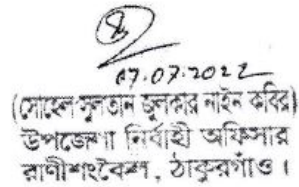 ০৭.০৭.২০২২
(সোহেল সুলতান জুলকার নাইন কবির)
উপজেলা নির্বাহী অফিসার
রাণীশংকৈল, ঠাকুরগাঁও।